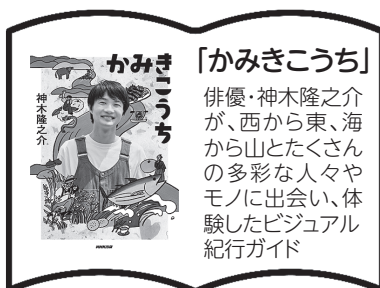 かみきこうち
神木隆之介
「かみきこうち」
俳優・神木隆之介
が、西から東、海
から山とたくさん
の多彩な人々や
モノに出会い、体
験したビジュアル
紀行ガイド